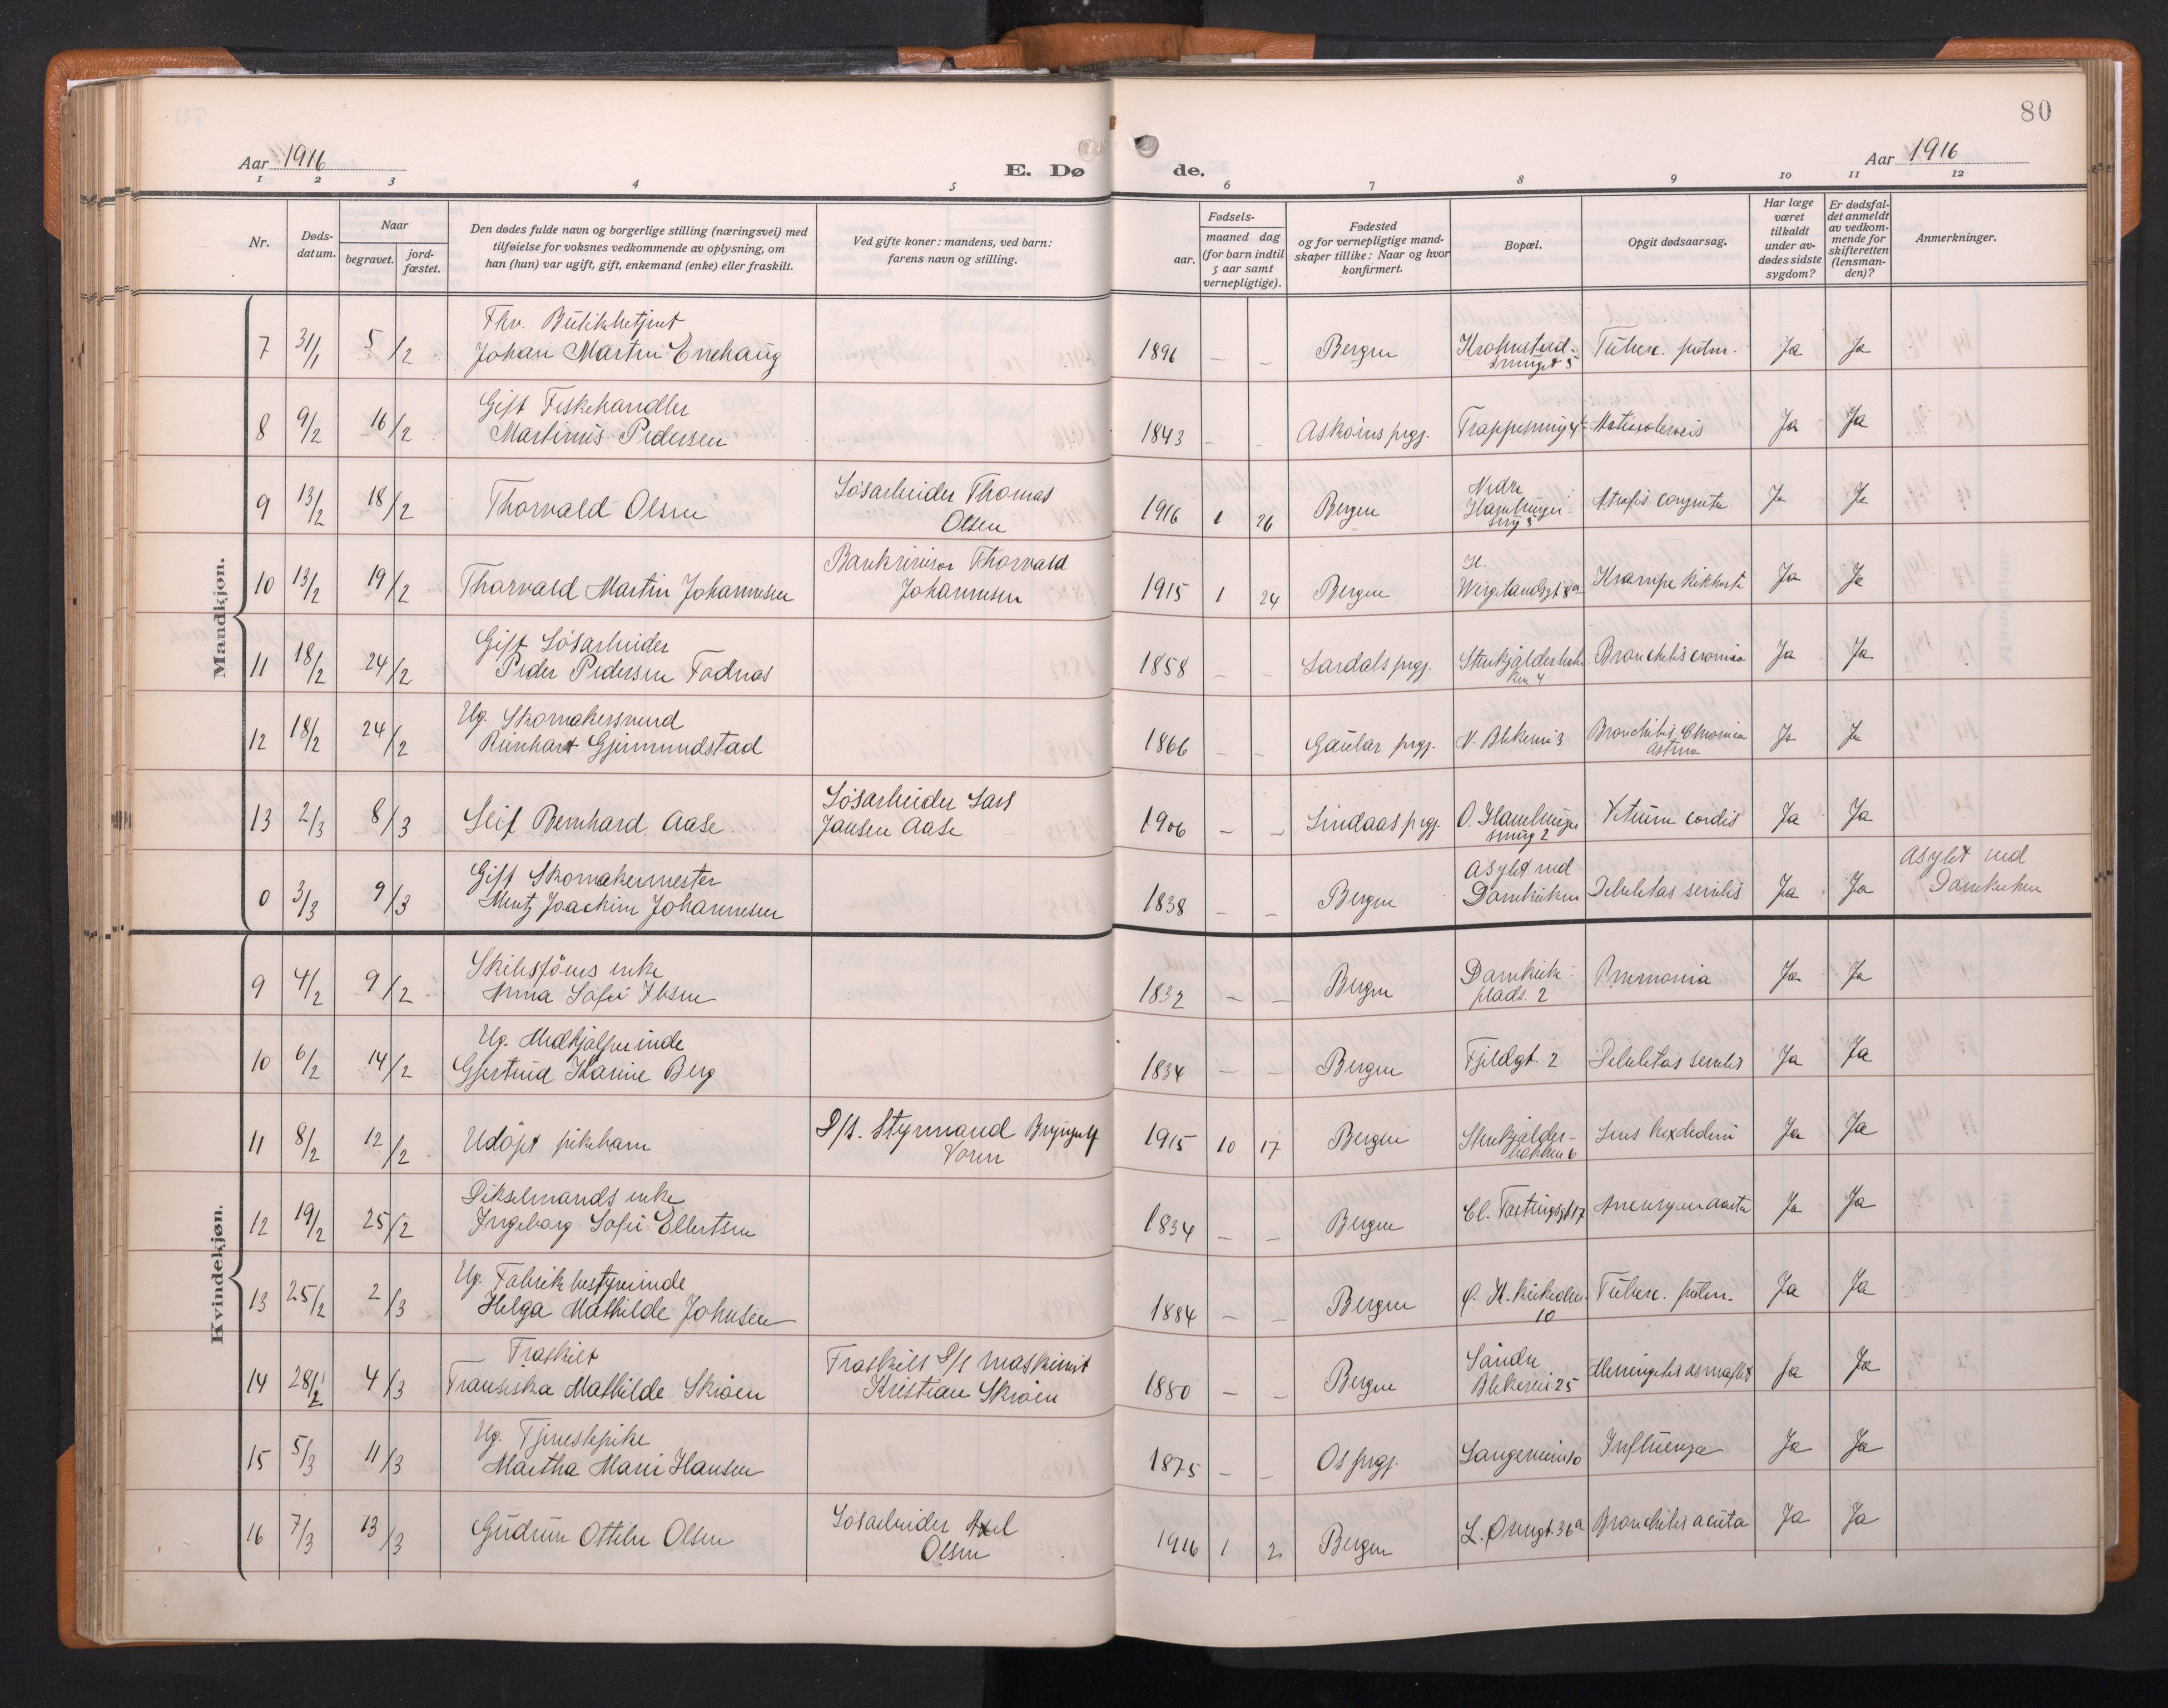 80
Aar 1916
E. Dø de.
Aar 1916
1 2 3 4 5 6 7 8 9 10 11 12
Nr.
Døds-
datum.
Naar
begravet.
jord-
fæstet.
Den dødes fulde navn og borgerlige stilling (næringsvei) med
tilføielse for voksnes vedkommende av oplysning, om
han (hun) var ugift, gift, enkemand (enke) eller fraskilt.
Ved gifte koner: mandens, ved barn:
farens navn og stilling.
Fødsels-
aar.
maaned dag
(for barn indtil
5 aar samt
vernepligtige).
Fødested
og for vernepligtige mand-
skaper tillike: Naar og hvor
konfirmert.
Bopæl.
Opgit dødsaarsag.
Har læge
været
tilkaldt
under av-
dødes sidste
sygdom?
Er dødsfal-
det anmeldt
av vedkom-
mende for
skifteretten
(lensman-
den)?
Anmerkninger.
Mandkjøn.
Fhv.
7 31/1 5/2 Johan Martin Enehaug 1896 — — Bergen Tuberc. pulm. Ja Ja
smuget 5
Gift Fiskehandler
8 9/2 16/2 Martinus Pedersen 1843 - - Askøins prgj. Trappesmug 4 Ja Ja
9 13/2 18/2 Thorvald Olsen Løsarbeider Thomas
Olsen
1916 1 26 Bergen Nedre
Hamburger-
smg 5
Ja Ja
10 13/2 19/2 Thorvald Martin Johannesen Bankrevisor Thorvald
Johannesen
1915 1 24 Bergen H.
Wergelandsgt 8a
Krampe kikhoste Ja Ja
Gift Løsarbeider
11 18/2 24/2 Peder Pedersen Fadnas 1858 - - prgj. Stenkjælderbak-
ken 4
Bronchitis cronica Ja Ja
Ug. Skomakersvend
12 18/2 24/2 Reinhart Gjermundstad 1866 - - Gaular prgj. N. Blekevei 3 Bronchitis Chronica
astma
Ja Ja
13 2/3 8/3 Leif Bernhard Aase Løsarbeider Lars
Jansen Aase
1906 - - Lindaas prgj. O. Hamburger
smug 2
Vitium cordis Ja Ja
Gift Skomakermester
0 3/3 9/3 Mentz Joackim Johannesen 1838 - - Bergen Asylet ved
Domkirken
Debilitas senilis Ja Ja Asylet ved
Domkirken
Kvindekjøn.
Skibsförers enke
9 4/2 9/2 Anna Sofie Ibsen 1832 - - Bergen Domkirke-
plads. 2
Pnmonia Ja Ja
Ug. Medhjælperinde
10 6/2 14/2 Gjertrud Karine Berg 1834 - - Bergen Fjeldgt. 2 Debilitas senilis Ja Ja
11 8/2 12/2 Udöpt pikebarn S/s. Styrmand Brynjulf
1915 10 17 Bergen Stenkjælder-
bakken 6
Ja Ja
enke
12 19/2 25/2 Ingeborg Sofie Ellertsen 1834 - - Bergen Ja Ja
Ug. Fabrikbestyrerinde
13 25/2 2/3 Helga Mathilde Johnsen 1884 - - Bergen 10 Tuberc. pulm. Ja Ja
Fraskilt
14 28/2 4/3 Fransiska Mathilde Skiøen Fraskilt S/s maskinist
Kristian Skiøen
1880 - - Bergen Söndre
Blekevei 25
Ja Ja
Ug. Tjenestepike
15 5/3 11/3 Martha Marie Hansen 1875 - - Os prgj. Influenza Ja Ja
16 7/3 13/3 Gudrun Ottilie Olsen Løsarbeider Axel
Olsen
1916 1 2 Bergen L. Øvregt. 36a Bronchitis acuta Ja Ja